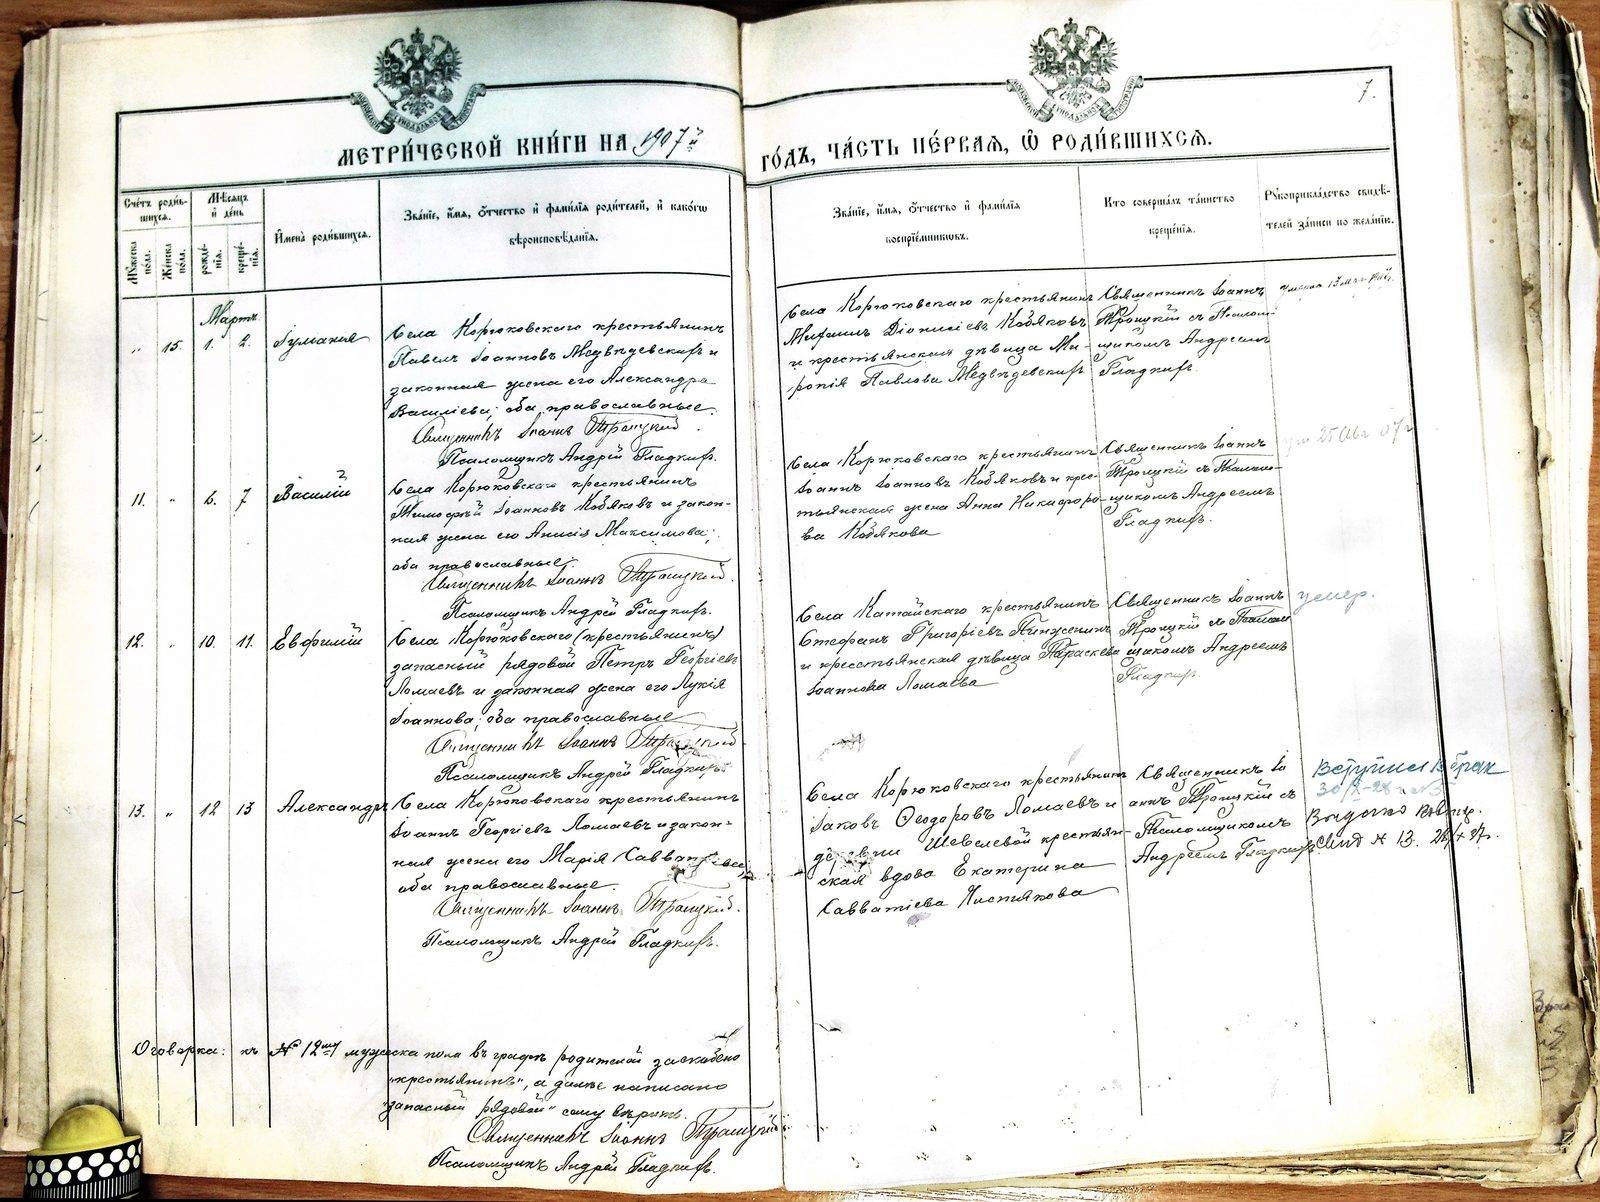 7.
МЕТРИ́ЧЕСКОЙ КНИ́ГИ НА 1907й ГО́ДЪ, ЧА́СТЬ ПЕ́РВАЯ, Ѡ҆ РОДИ́ВШИХСЯ.
Сче́тъ роди́вшихся.
Му́жеска по́ла.
Же́нска по́ла.
Мѣ́сяцъ и де́нь
рожде́нїя.
креще́нїя.
Имена̀ роди́вшихся.
Зва́нїе, и́мя, о́тчество и фами́лїя роди́телей, и како́гѡ
вѣроисповѣ́данїя.
Зва́нїе, и́мя, о́тчество и фами́лїя
воспрїе́мниковъ.
Кто соверша́лъ та́инство
креще́нїя.
Рꙋкоприкла́дство свидѣ́-
телей за́писи по жела́нїю.
Мартъ
„ 15. 1. 2.
Села Корюковскаго крестьянинъ
Павелъ Іоанновъ Медвѣдевскихъ и
законная жена его Александра
Василіева; оба православные.
Священникъ Іоаннъ Троицкій.
Псаломщикъ Андрей Гладкихъ.
Села Корюковскаго крестьянинъ
Діонисіевъ Кобяковъ
и крестьянская дѣвица Ми-
ропія Павлова Медвѣдевскихъ
Священникъ Іоаннъ
Троицкій съ Псалом-
щикомъ Андреемъ
Гладкихъ
11. „ 6. 7 Василій
Села Корюковскаго крестьянинъ
Тимофей Іоанновъ Кобяковъ и закон-
ная жена его Анисія Максимова;
оба православные.
Священникъ Іоаннъ Троицкій.
Псаломщикъ Андрей Гладкихъ.
Села Корюковскаго крестьянинъ
Іоаннъ Іоанновъ Кобяковъ и крес-
тьянская жена Анна Никифоро-
ва Кобякова
Священникъ Іоаннъ
Троицкій съ Псалом-
щикомъ Андреемъ
Гладкихъ.
25 Авг 07 г
12. „ 10. 11. Евфимій
Села Корюковскаго (крестьянинъ)
запасный рядовой Петръ Георгіевъ
Ломаевъ и законная жена его Лукія
Іоаннова; оба православные
Священникъ Іоаннъ Троицкій.
Псаломщикъ Андрей Гладкихъ.
Села Катайскаго крестьянинъ
Стефанъ Григоріевъ
и крестьянская дѣвица Параскева
Іоаннова Ломаева
Священникъ Іоаннъ
Троицкій съ Псалом-
щикомъ Андреемъ
Гладкихъ.
умер.
13. „ 12 13 Александръ
Села Корюковскаго крестьянинъ
Іоаннъ Георгіевъ Ломаевъ и закон-
ная жена его Марія Савватіева
оба православные.
Священникъ Іоаннъ Троицкій.
Псаломщикъ Андрей Гладкихъ.
Села Корюковскаго крестьянинъ
Іаковъ Ѳеодоровъ Ломаевъ и
деревни Шевелевой крестьян-
ская вдова Екатерина
Савватіева Чистякова
Священникъ Іо
аннъ Троицкій съ
Псаломщикомъ
Андреемъ Гладкихъ
Вступил в брак
Выдано
Оговорка: къ № 12му мужеска пола въ графѣ родителей заскоблено
„крестьянинъ", а далѣе написано
„запасный рядовой" сему вѣрить.
Священникъ Іоаннъ Троицкій
Псаломщикъ Андрей Гладкихъ.